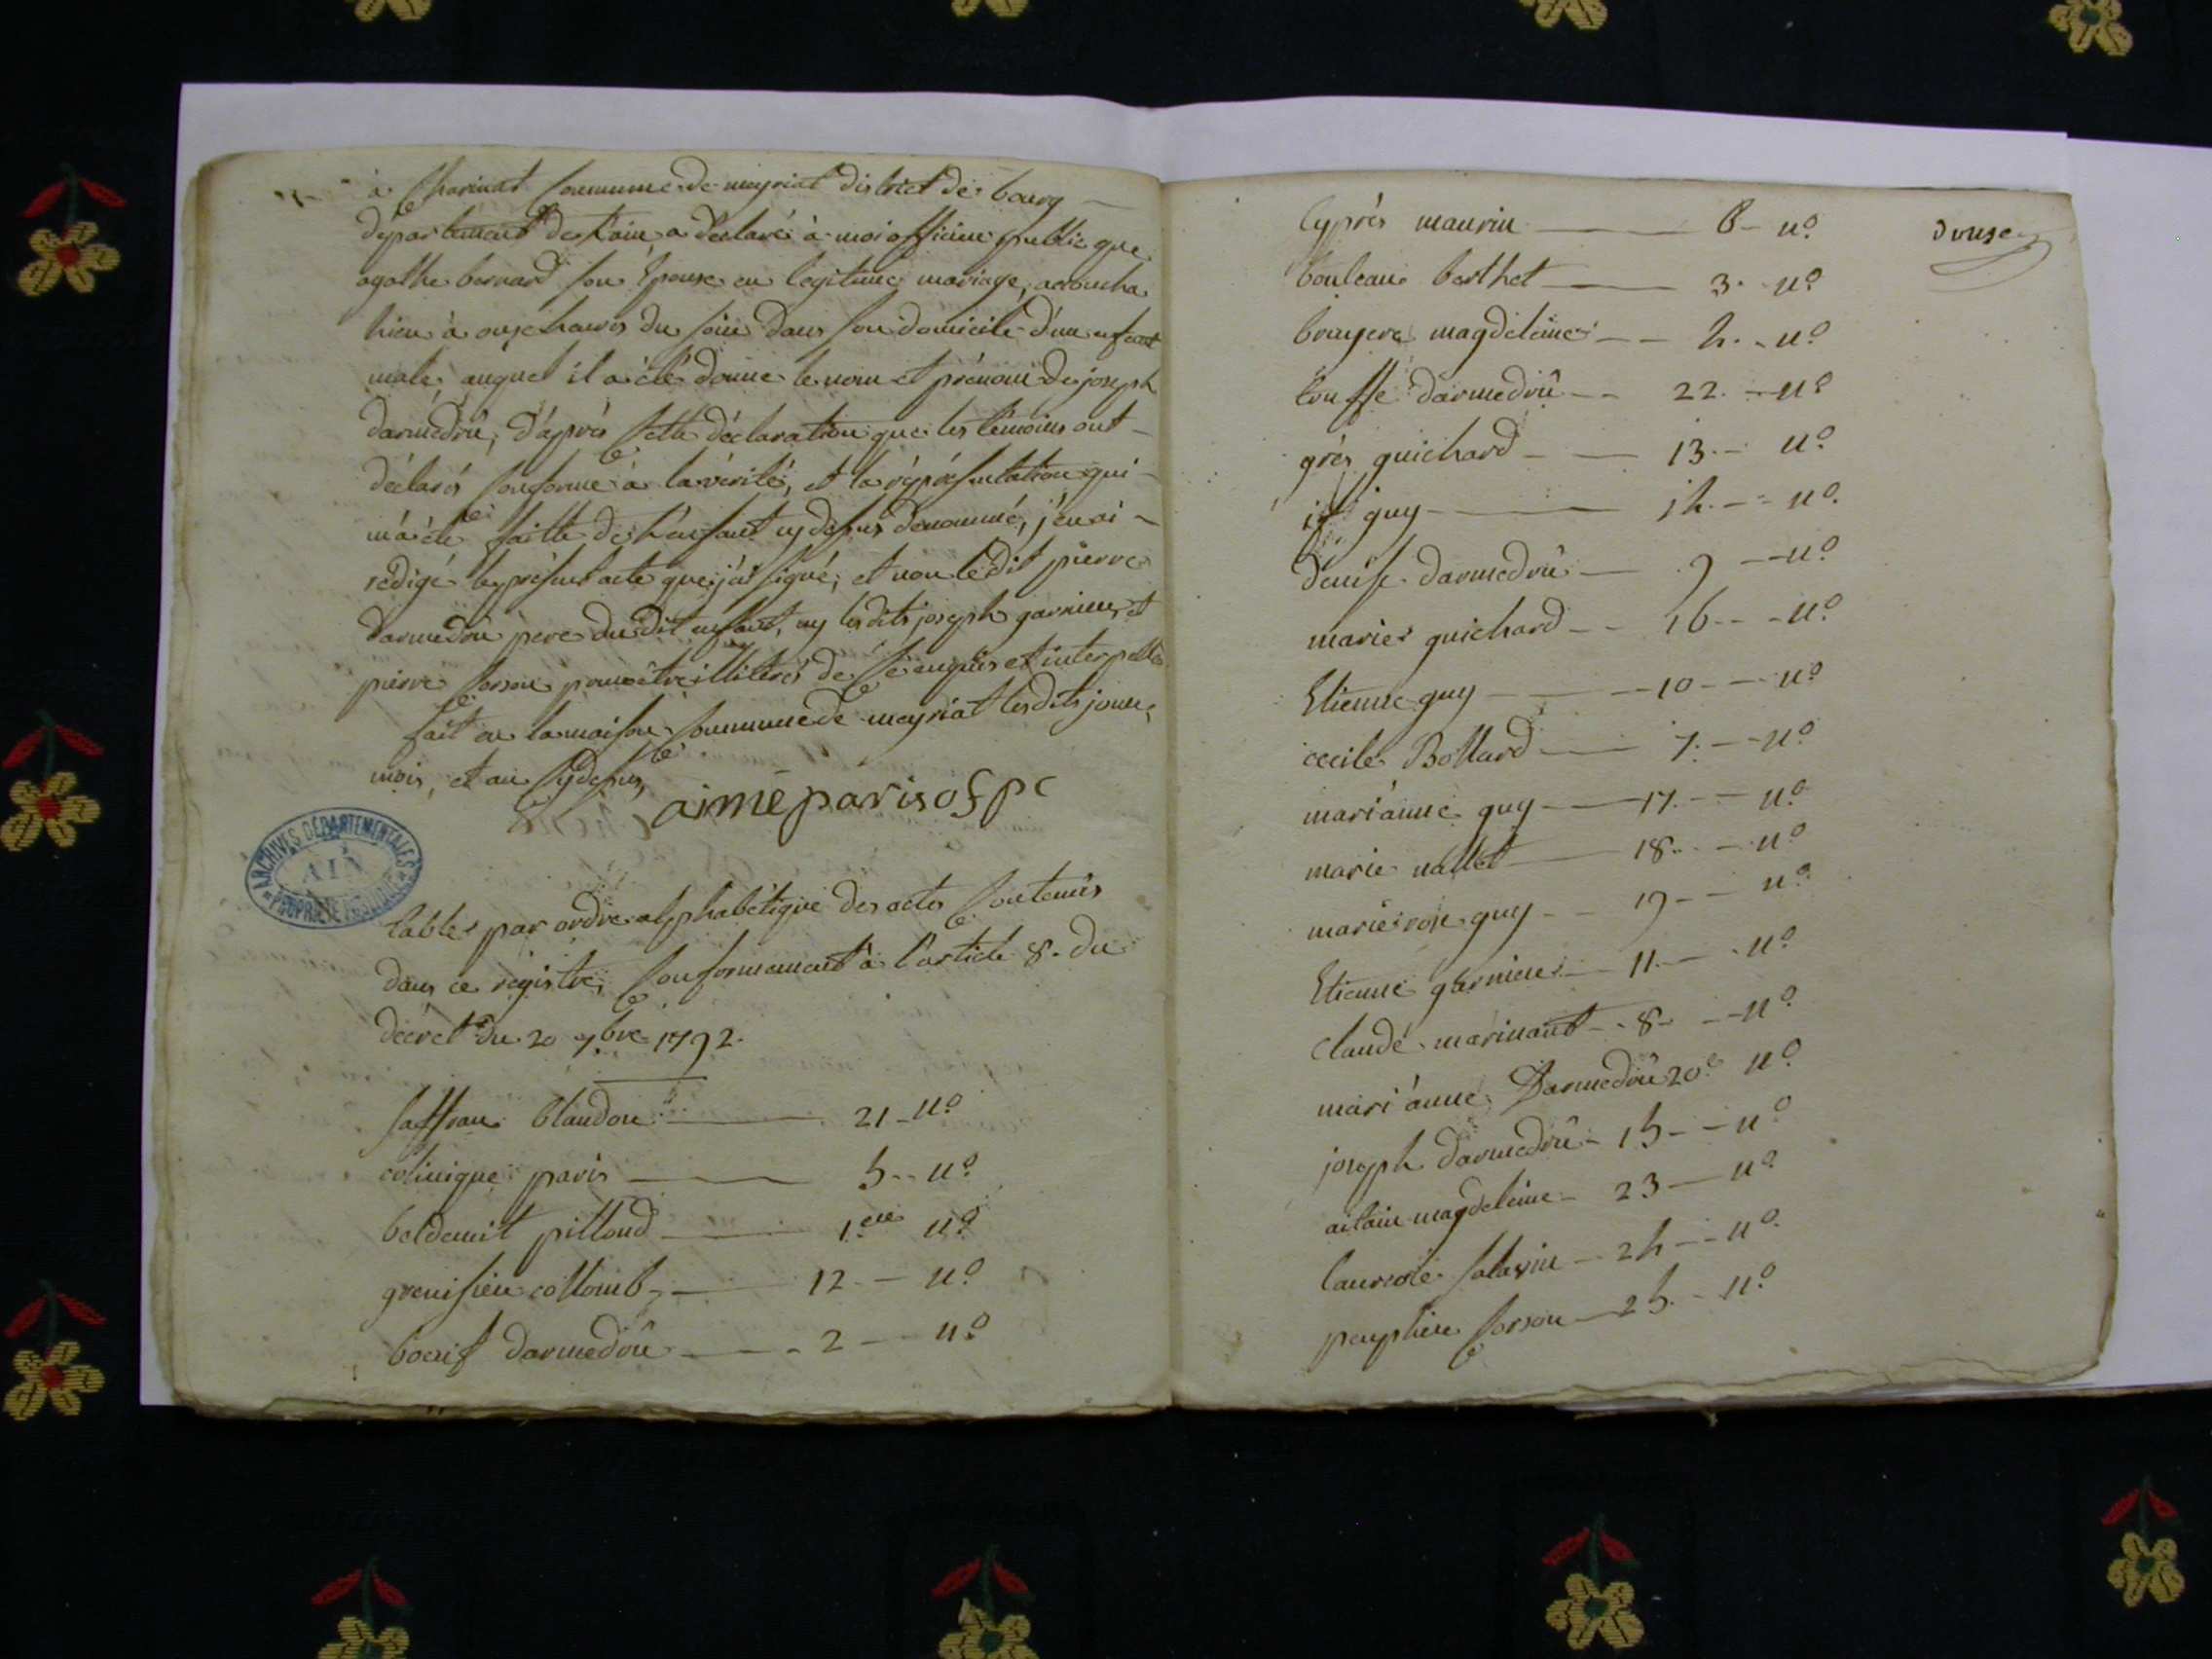 à Charinat Commune de meyriat district de bourg
département de l'ain, a déclaré à moi officier public que
agathe bernard son Epouse en legitime mariage, accoucha
hier à onze heures du soir dans son domicile d'un enfant
male auquel il a été donné le nom et prénom de joseph
darmedrû, d'après Cette déclaration que les témoins ont
déclarés Conforme à la vérité, et la réprésentation qui
m'a été faitte de l'enfant cy dessus denommé, j'en ai
redigé le présent acte que j'ai signé, et non le dit pierre
darmedrû pere du dit enfant, ny les dits joseph garnier, et
pierre Corson pour être illiterés de Ce enquis et interpellés
fait en la maison Commune de meyriat les dits jour,
mois, et an Cydessus,
aimé paris ofpc
ARCHIVES DÉPARTEMENTALES
AIN
PROPRIÉTÉ PUBLIQUE
table par ordre alphabétique des actes Contenus
dans ce régistre, Conformement à l'article 8. du
décret du 20 7bre 1792.
saffran blandon 21 - n°
colinique paris 5 - n°
beldemit pittoud 1ere n°
grenisien collomb 12 - n°
boeuf darmedrû 2 - n°
Cyprès maurin 6 - n°
bouleau berthet 3. n°
bruyere magdeleine 4. - n°
touffe darmedrû 22. - n°
grès guichard 13. - n°
if guy 14. - n°
denise darmedrû 9 - n°
marie guichard 16 - n°
Etienne guy 10 - n°
cecile Bottard 7. - n°
mariánne guy 17. - n°
marie nallet 18. - n°
marie rose guy 19 - n°
Etienne garnier 11. - n°
claude marinant 8 - n°
mariánne Darmedrû 20e n°
joseph darmedrû 15 - n°
ailain magdeleine 23 - n°
laureole salavin 24 - n°
peuplier Corson 25. - n°
douze